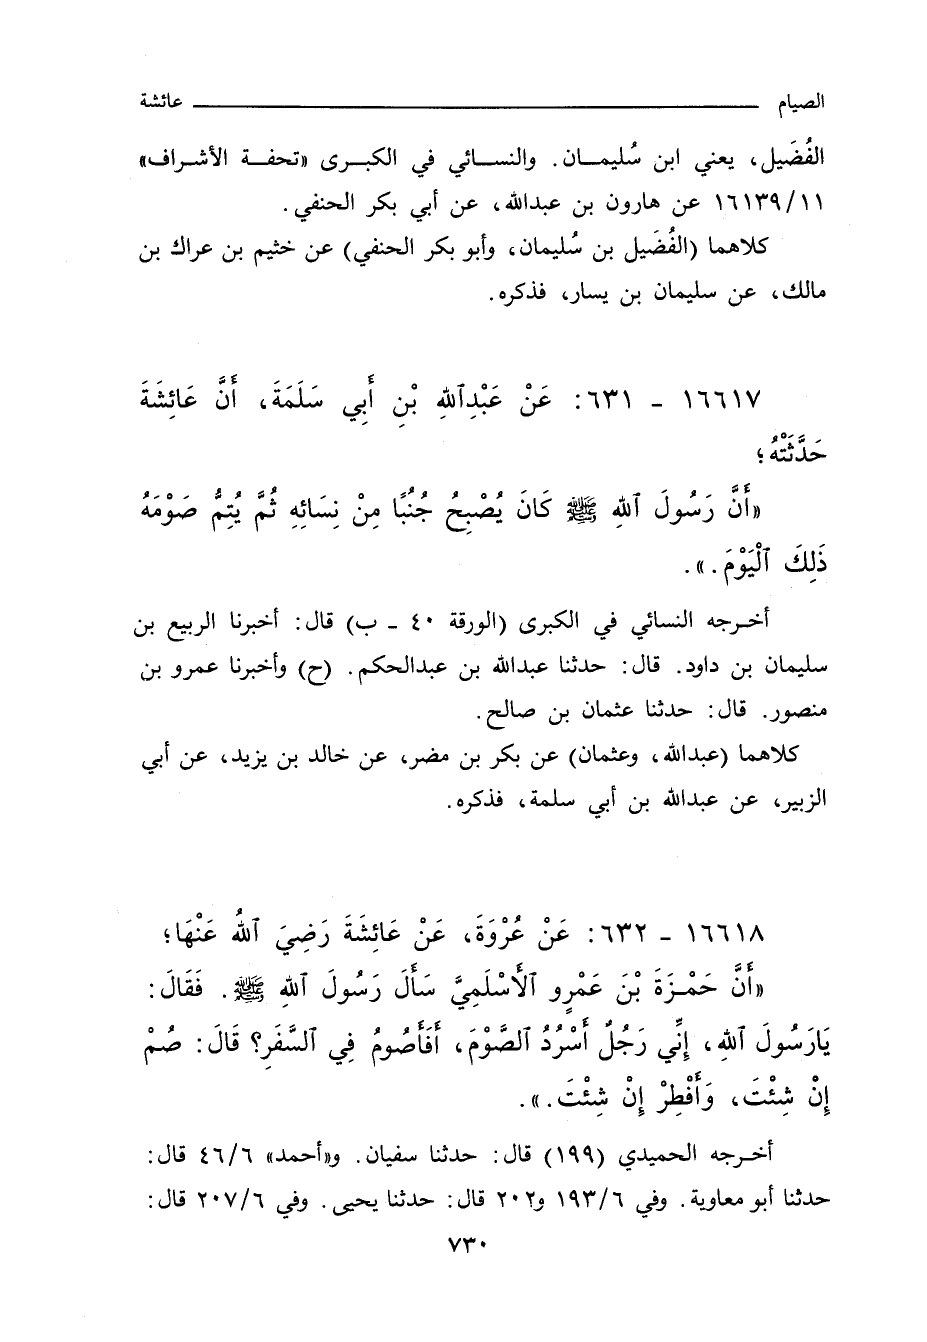 الصيام عائشة
الفُضَيل، يعني ابن سُليمان. والنسائي في الكبرى «تحفة الأشراف»
١٦١٣٩/١١ عن هارون بن عبدالله، عن أبي بكر الحنفي.
كلاهما (الفُضَيل بن سُليمان، وأبو بكر الحنفي) عن خثيم بن عراك بن
مالك، عن سليمان بن يسار، فذكره.
١٦٦١٧ - ٦٣١: عَنْ عَبْدِاللهِ بْنِ أَبِي سَلَمَةَ، أَنَّ عَائِشَةَ
حَدَّثَتْهُ؛
«أَنَّ رَسُولَ ٱللهِ ﷺ كَانَ يُصْبِحُ جُنُبًا مِنْ نِسَائِهِ ثُمَّ يُتِمُّ صَوْمَهُ
ذَلِكَ ٱلْيَوْمَ.».
أخرجه النسائي في الكبرى (الورقة ٤٠ - ب) قال: أخبرنا الربيع بن
سليمان بن داود. قال: حدثنا عبدالله بن عبدالحكم. (ح) وأخبرنا عمرو بن
منصور. قال: حدثنا عثمان بن صالح.
كلاهما (عبدالله، وعثمان) عن بكر بن مضر، عن خالد بن يزيد، عن أبي
الزبير، عن عبدالله بن أبي سلمة، فذكره.
١٦٦١٨ - ٦٣٢: عَنْ عُرْوَةَ، عَنْ عَائِشَةَ رَضِيَ ٱللهُ عَنْهَا؛
«أَنَّ حَمْزَةَ بْنَ عَمْرٍو ٱلأَسْلَمِيَّ سَأَلَ رَسُولَ ٱللهِ ﷺ. فَقَالَ:
يَارَسُولَ ٱللهِ، إِنِّي رَجُلٌ أَسْرُدُ ٱلصَّوْمَ، أَفَأَصُومُ فِي ٱلسَّفَرِ؟ قَالَ: صُمْ
إِنْ شِئْتَ، وَأَفْطِرْ إِنْ شِئْتَ.».
أخرجه الحميدي (١٩٩) قال: حدثنا سفيان. و«أحمد» ٤٦/٦ قال:
حدثنا أبو معاوية. وفي ١٩٣/٦ و٢٠٢ قال: حدثنا يحيى. وفي ٢٠٧/٦ قال:
٧٣٠